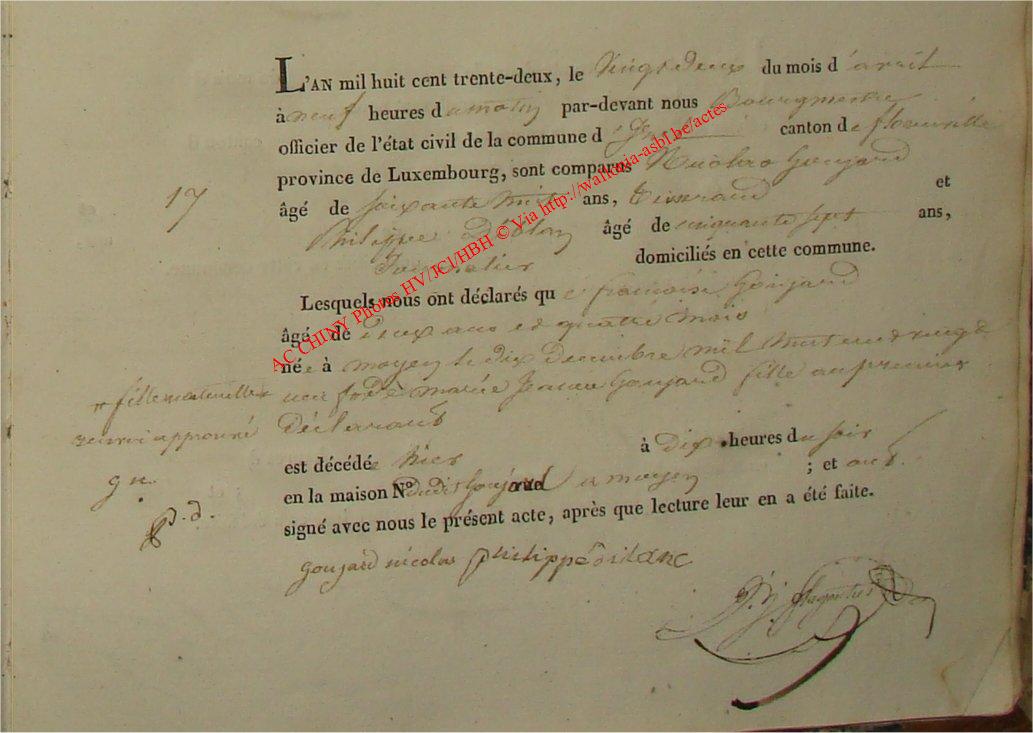 L'AN mil huit cent trente-deux, le vingt deux du mois d'avril
à neuf heures du matin par-devant nous Bourgmestre
officier de l'état civil de la commune d canton de florenville
province de Luxembourg, sont comparus Nicolas Goujard
17
âgé de soixante huit ans, tisserand et
Philippe âgé de cinquante sept ans,
domiciliés en cette commune.
Lesquels nous ont déclarés que françoise Goujard
âgé de deux ans et quatre mois
née à moyen le dix decembre mil huit cent vingt
neuf de marie Jeanne Goujard fille au premier
"fille naturelle"
déclarant
renvoi approuvé
est décédée hier à dix heures du soir
g n.
en la maison N° dudit Goujard a moyen ; et ont
p. d.
signé avec nous le présent acte, après que lecture leur en a été faite.
goujard nicolas philippe
AC CHINY Photos HV/JCl/HBH © Via http://wallonia-asbl.be/actes